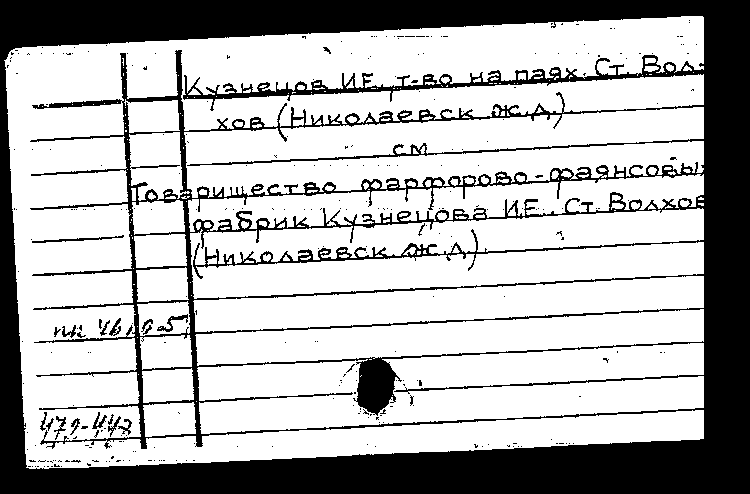 Кузнецов И.Е., т-во на паях. Ст. Вол-
хов (Николаевск. ж.д.)
см
Товарищество фарфорово-фаянсовых
фабрик Кузнецова И.Е. Ст. Волхов
(Николаевск. ж.д.)